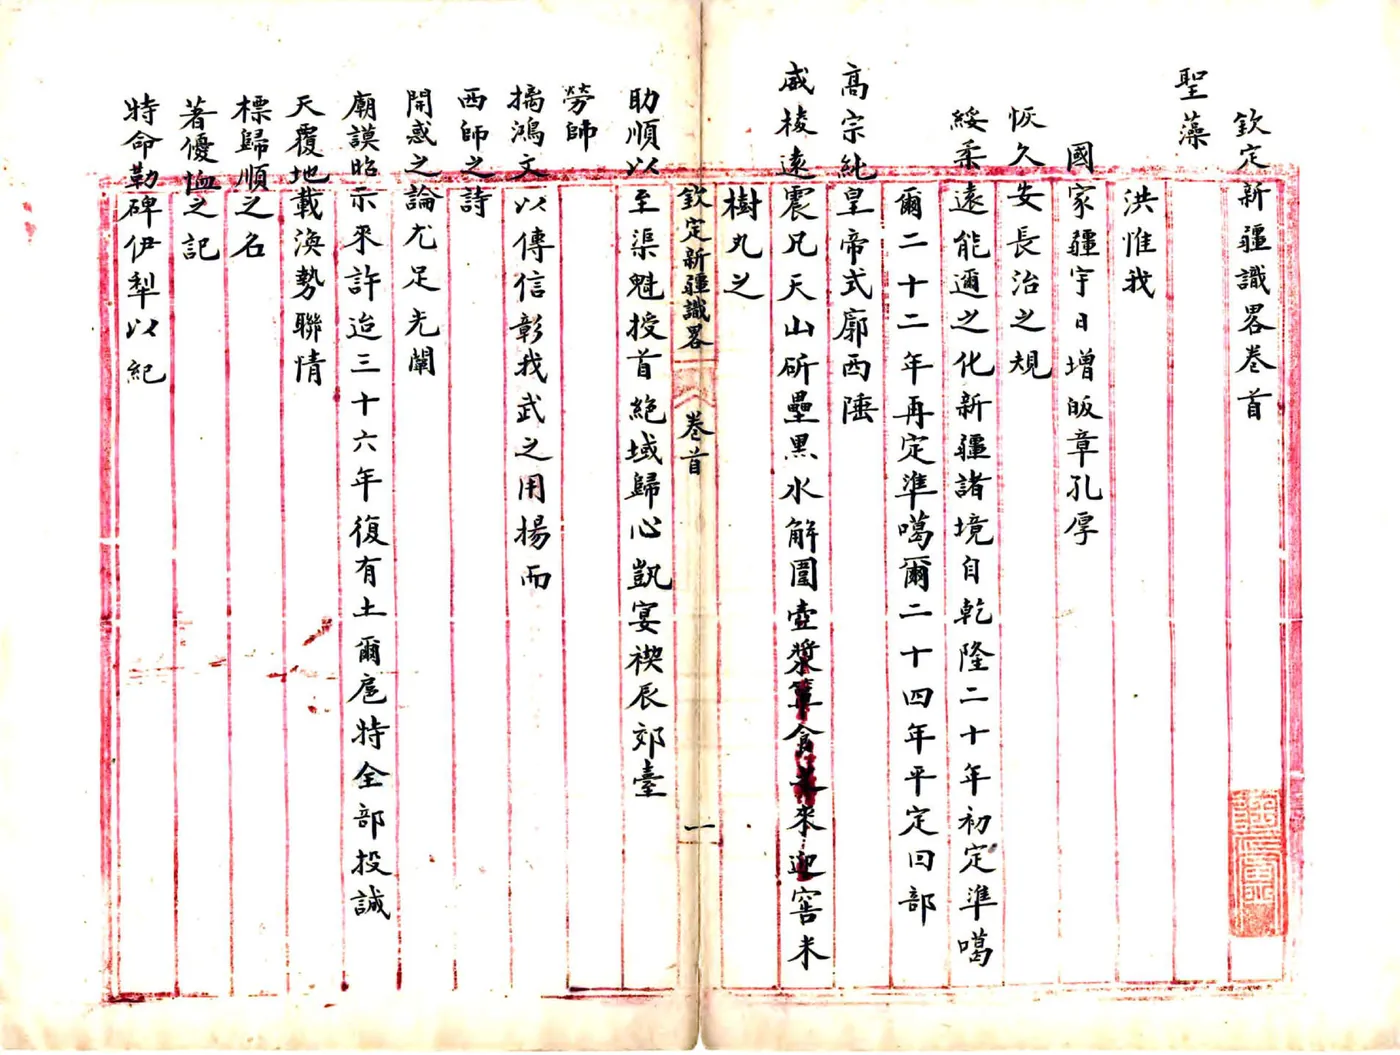 欽定新疆識畧卷首
聖藻
洪惟我
國家疆宇日增畈章孔厚
恢久安長治之規
綏柔遠能邇之化新疆諸境自乾隆二十年初定準噶
爾二十二年再定準噶爾二十四年平定回部
高宗純皇帝式廓西陲
威棱遠震凡天山斫壘黑水解圍壺漿簞食 來迎窖米
樹丸之
欽定新疆識畧 卷首 一
助順以至渠魁授首絕域歸心凱宴禊辰郊臺
勞師
摛鴻文以傳信彰我武之用揚而
西師之詩
開惑之論尤足光闡
廟謨昭示來許迨三十六年復有土爾扈特全部投誠
天覆地載渙勢聯情
標歸順之名
著優恤之記
特命勒碑伊犁以紀